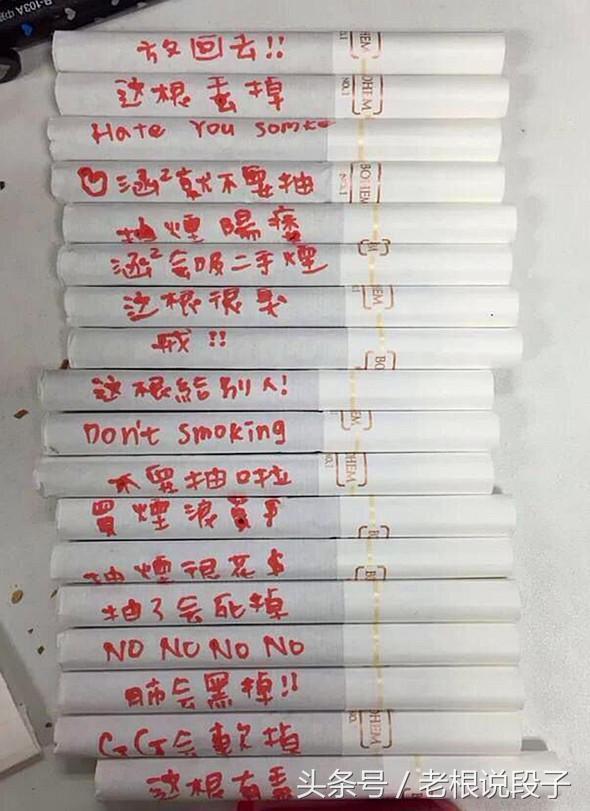 B-103A
放回去!!
这根丟掉
Hate You somke
♡涵²就不要抽
抽煙陽痿
涵²会吸二手煙
这根很臭
戒!!
这根給別人!
Don't smoking
不要抽啦
買煙浪費
抽煙很花$
抽了会死掉
NO NO NO NO
肺会黑掉!!
GG会軟掉
这根有毒
BOHEM
NO.1
头条号 / 老根说段子